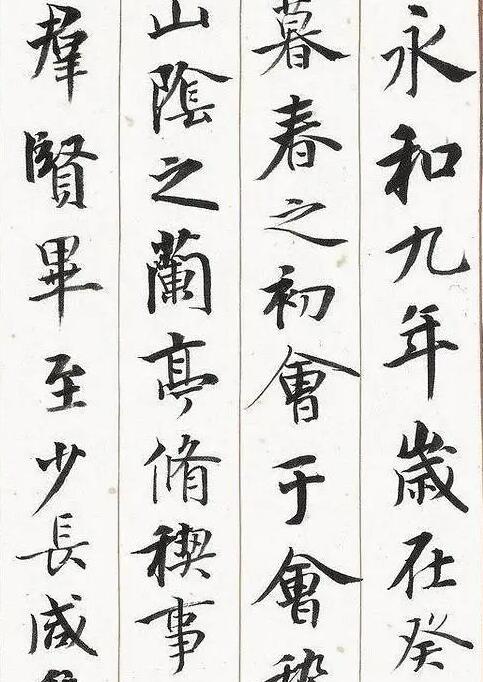 永和九年歲在癸
暮春之初會于會
山陰之蘭亭脩稧事
羣賢畢至少長咸